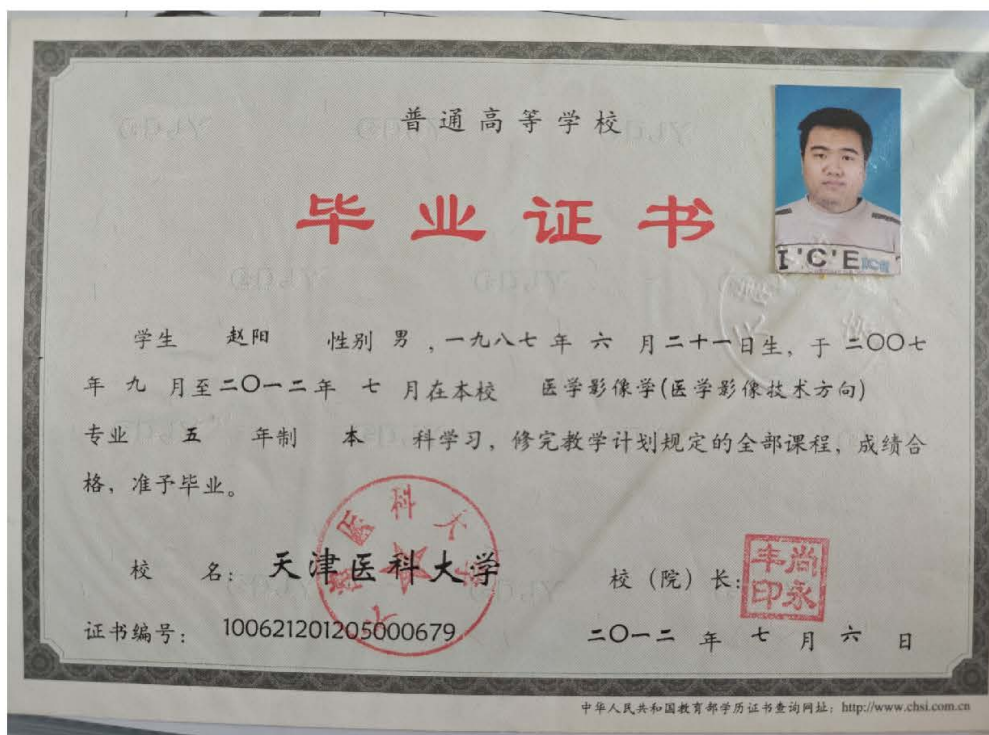 普通高等学校
毕业证书
I'C'E ICE
学生 赵阳 性别 男 ,一九八七 年 六 月二十一日生,于 二〇〇七
年 九 月至二〇一二年 七 月在本校 医学影像学(医学影像技术方向)
专业 五 年制 本 科学习,修完教学计划规定的全部课程,成绩合
格,准予毕业。
天津医科大学
校 名: 天津医科大学
校(院)长: 尚永丰印
证书编号: 100621201205000679
二〇一二 年 七 月 六 日
中华人民共和国教育部学历证书查询网址: http://www.chsi.com.cn